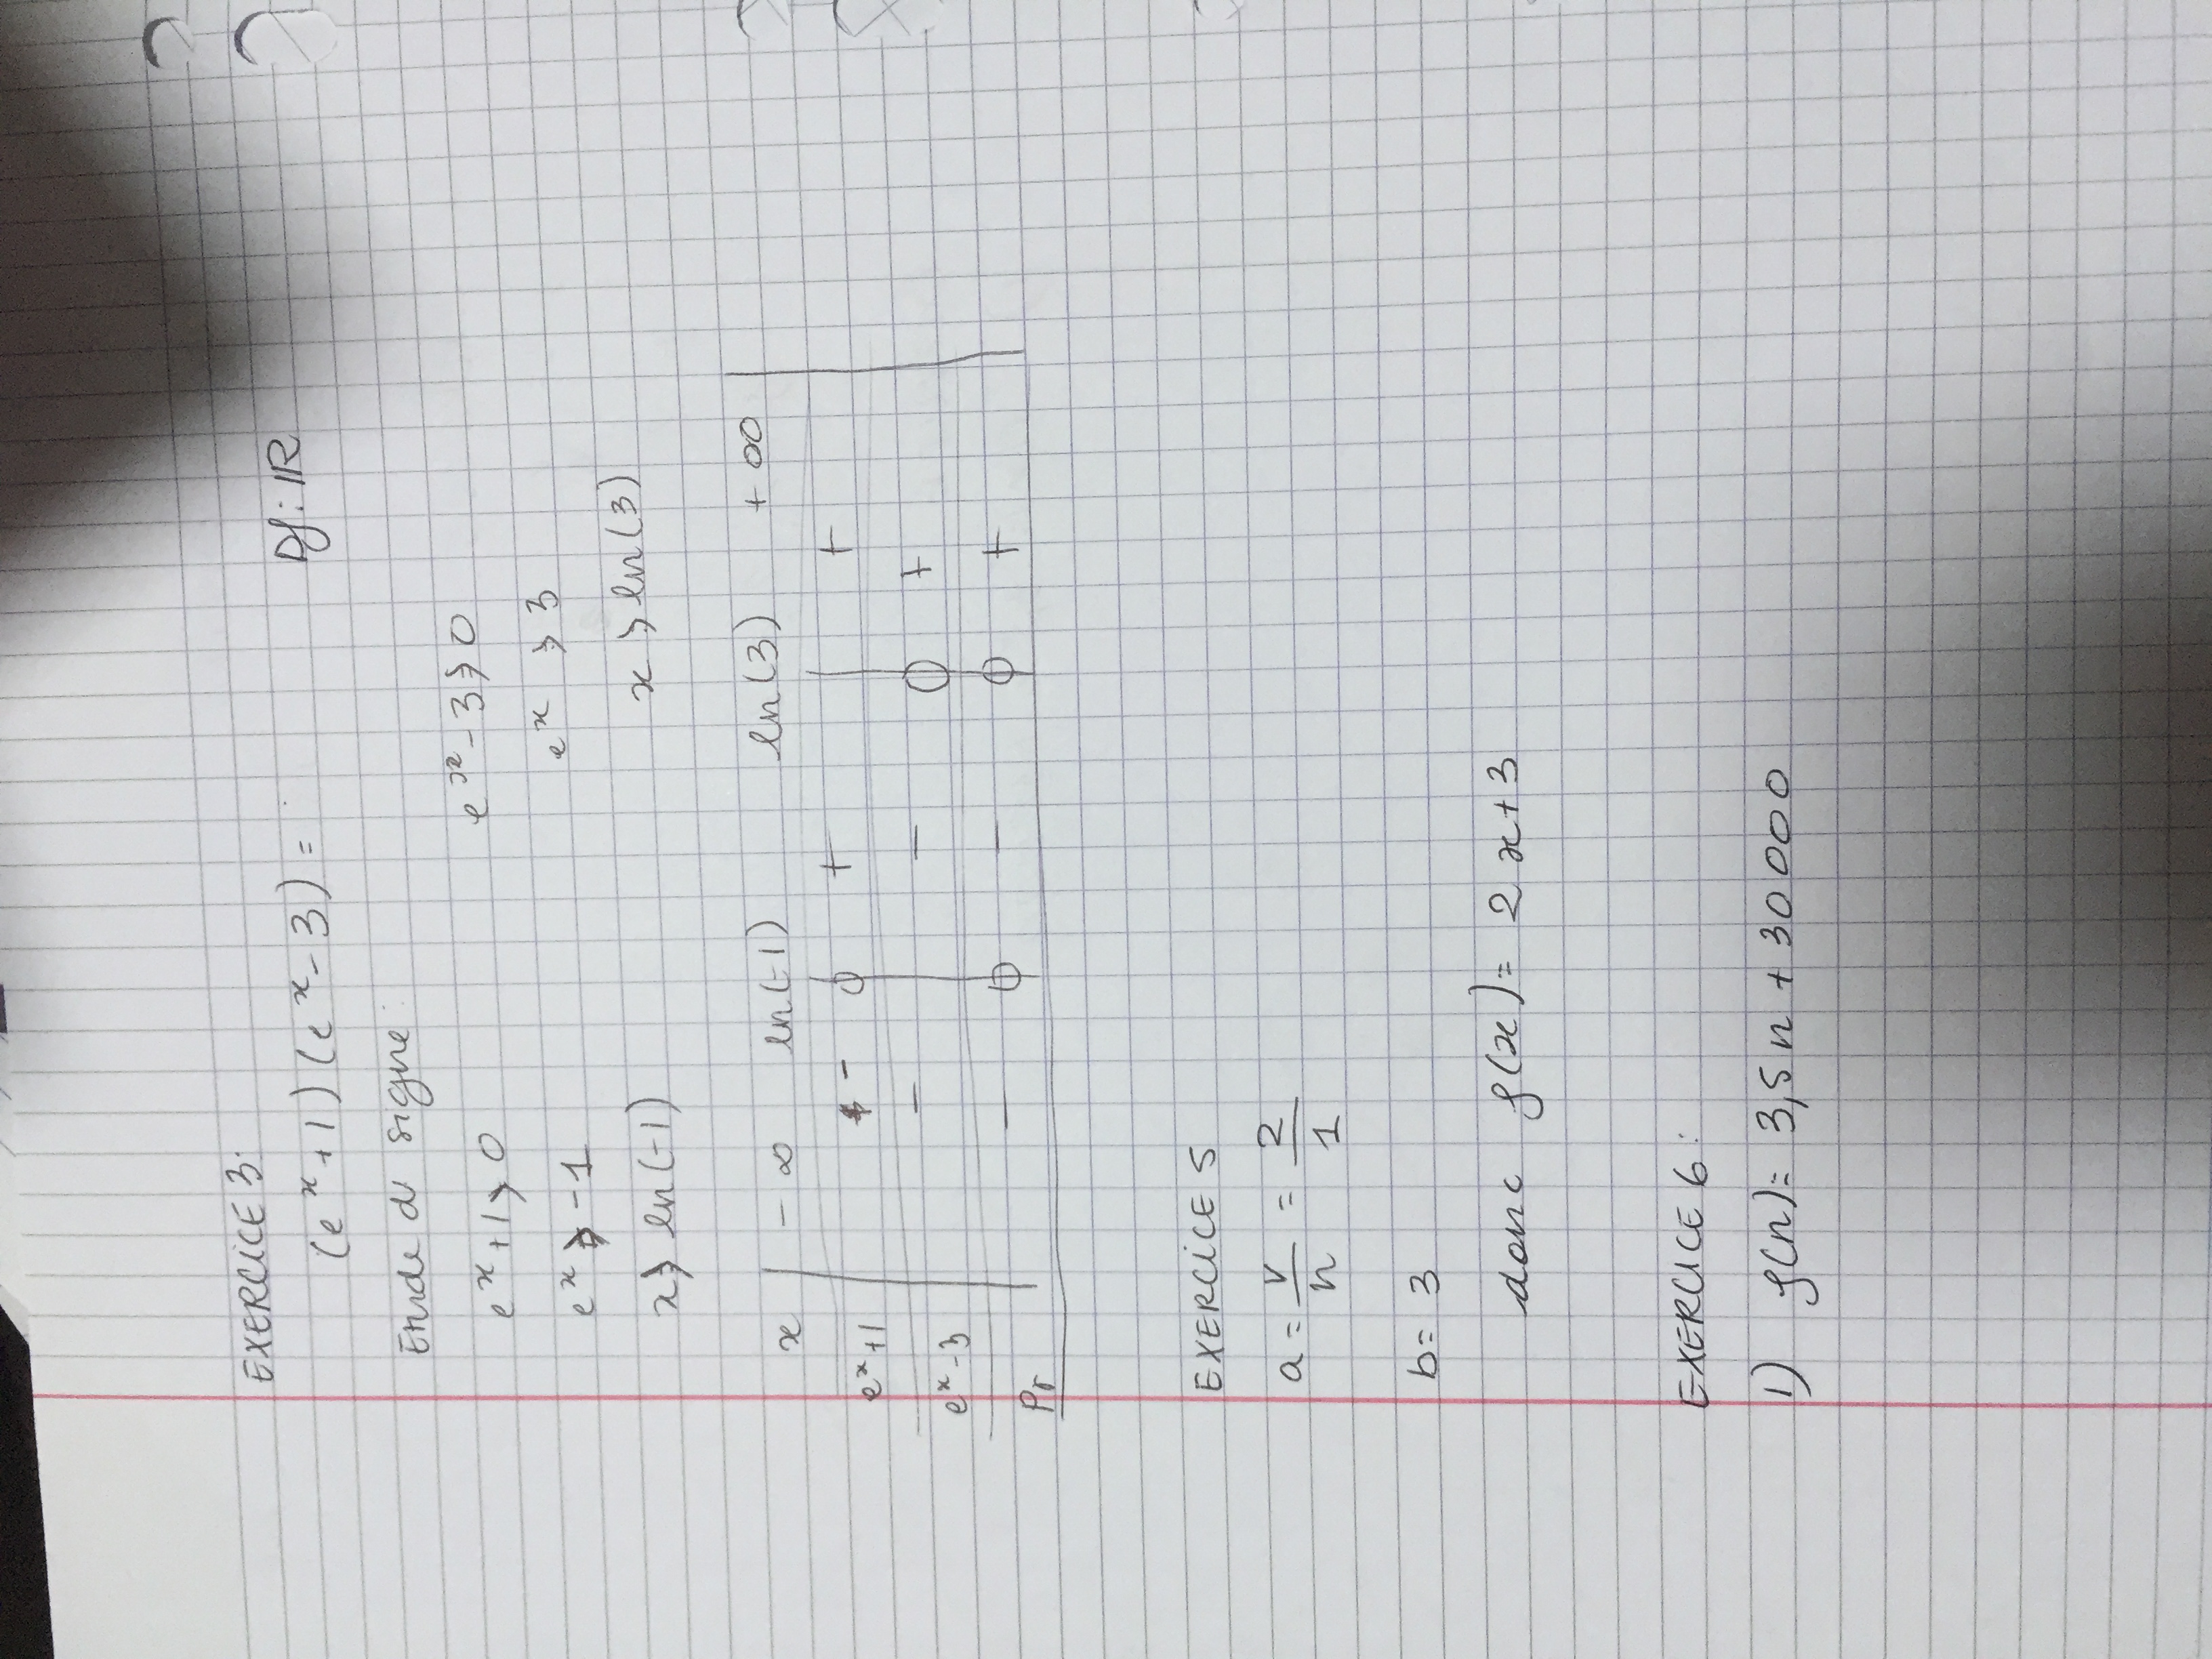 EXERCICE 3:
(e^x + 1) (e^x - 3) = Df: IR
Etude de signe:
e^x + 1 ⩾ 0 e^x - 3 ⩾ 0
e^x ⩾ -1 e^x ⩾ 3
x ⩾ ln(-1) x ⩾ ln(3)
x - ∞ ln(-1) ln(3) + ∞
e^x + 1 - 0 + +
e^x - 3 - - 0 +
Pr - 0 - 0 +
EXERCICE 5
a = v/n = 2/1
b = 3
donc f(x) = 2x + 3
EXERCICE 6:
1) f(n) = 3,5n + 30 000